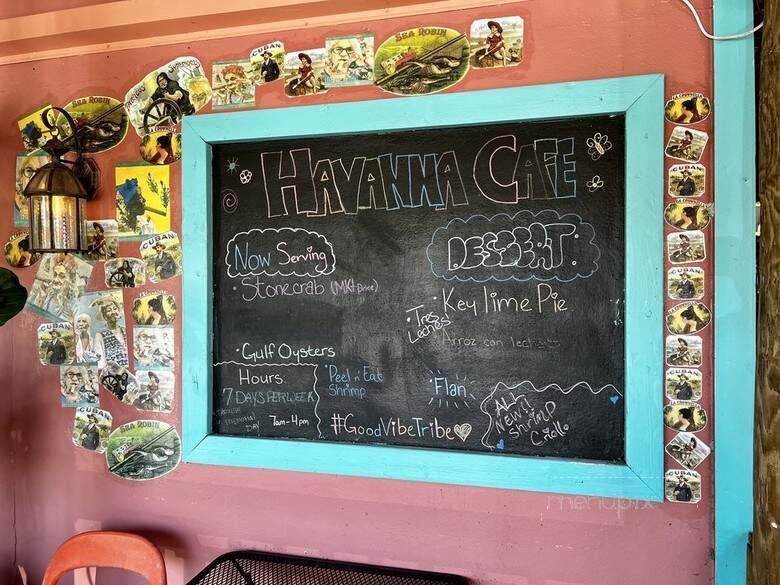 HAVANNA CAFE
Now Serving
• Stonecrab (MKt price)
• Gulf Oysters
Hours:
7 DAYS PER WEEK
THROUGH
MEMORIAL
DAY
7am-4pm
• Peel n' Eat
Shrimp
#GoodVibeTribe
DESSERT:
• Key lime Pie
• Tres
Leches!
Arroz con leche
• Flan
ALL
NEW!!
Shrimp
Criollo
SEA ROBIN
CUBAN
SEA ROBIN
CUBAN
CUBAN
CUBAN
CUBAN
SEA ROBIN
CUBAN
CUBAN
CUBAN
CUBAN
menupix